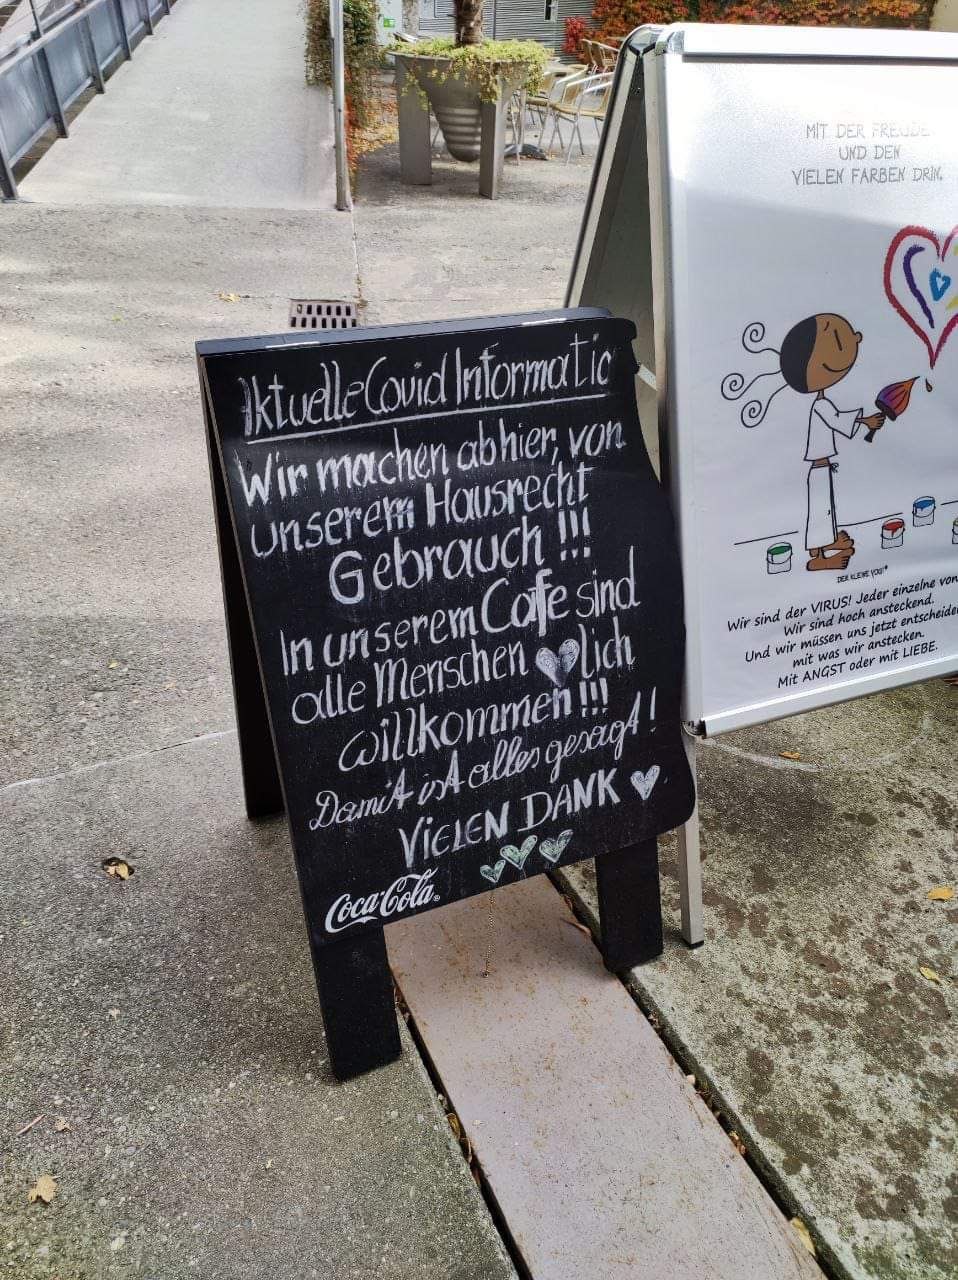 Aktuelle Covid Informatio
Wir machen abhier, von
unserem Hausrecht
Gebrauch !!!
In unserem Cafe sind
alle Menschen ♥lich
willkommen !!!
Damit ist alles gesagt !
VIELEN DANK ♡
Coca-Cola
MIT DER FREUDE
UND DEN
VIELEN FARBEN DRIN.
DER KLEINE YOGI®
Wir sind der VIRUS! Jeder einzelne von
Wir sind hoch ansteckend.
Und wir müssen uns jetzt entscheide
mit was wir anstecken.
Mit ANGST oder mit LIEBE.